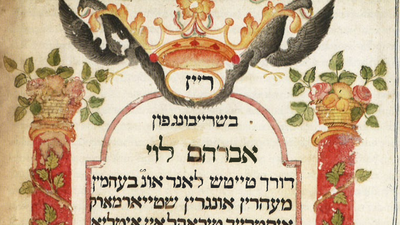 ריין
בשרייבונג פון
אברהם לוי
דורך טייטש לאנד אונ בעהמין
מעהרין אונגרין שטייארמארק